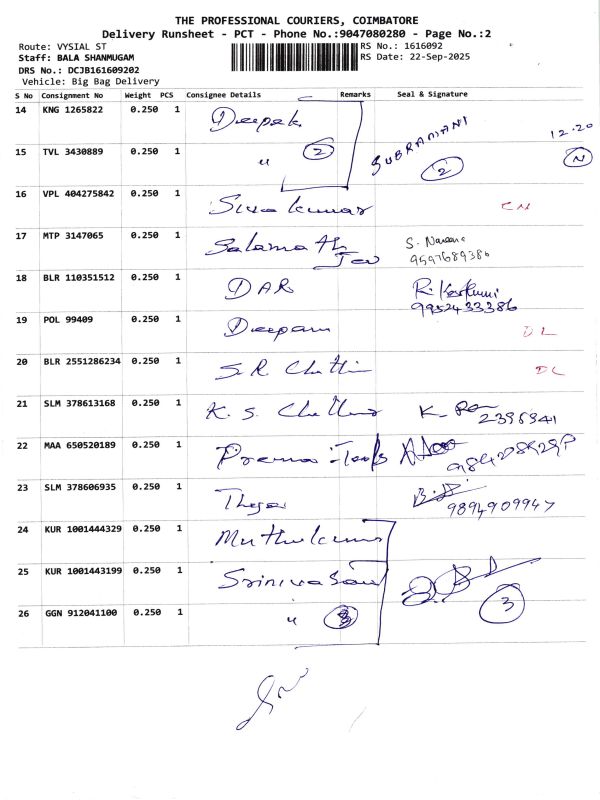 THE PROFESSIONAL COURIERS, COIMBATORE
Delivery Runsheet - PCT - Phone No.:9047080280 - Page No.:2
Route: VYSIAL ST RS No.: 1616092
Staff: BALA SHANMUGAM RS Date: 22-Sep-2025
DRS No.: DCJB161609202
Vehicle: Big Bag Delivery
S No Consignment No Weight PCS Consignee Details Remarks Seal & Signature
14 KNG 1265822 0.250 1 Deepak
SUBRAMANI 12.20
15 TVL 3430889 0.250 1 " 2 2 N
16 VPL 404275842 0.250 1 Sivakumar CN
17 MTP 3147065 0.250 1 Salama
9597689386
18 BLR 110351512 0.250 1 DAR
9952433386
19 POL 99409 0.250 1 Deepam DL
20 BLR 2551286234 0.250 1 S.R. DL
21 SLM 378613168 0.250 1 K. S. K.
2395941
22 MAA 650520189 0.250 1 Prema Tools
23 SLM 378606935 0.250 1
9894909947
24 KUR 1001444329 0.250 1 Muthukumar
25 KUR 1001443199 0.250 1 Srinivasan
26 GGN 912041100 0.250 1 " 3 3